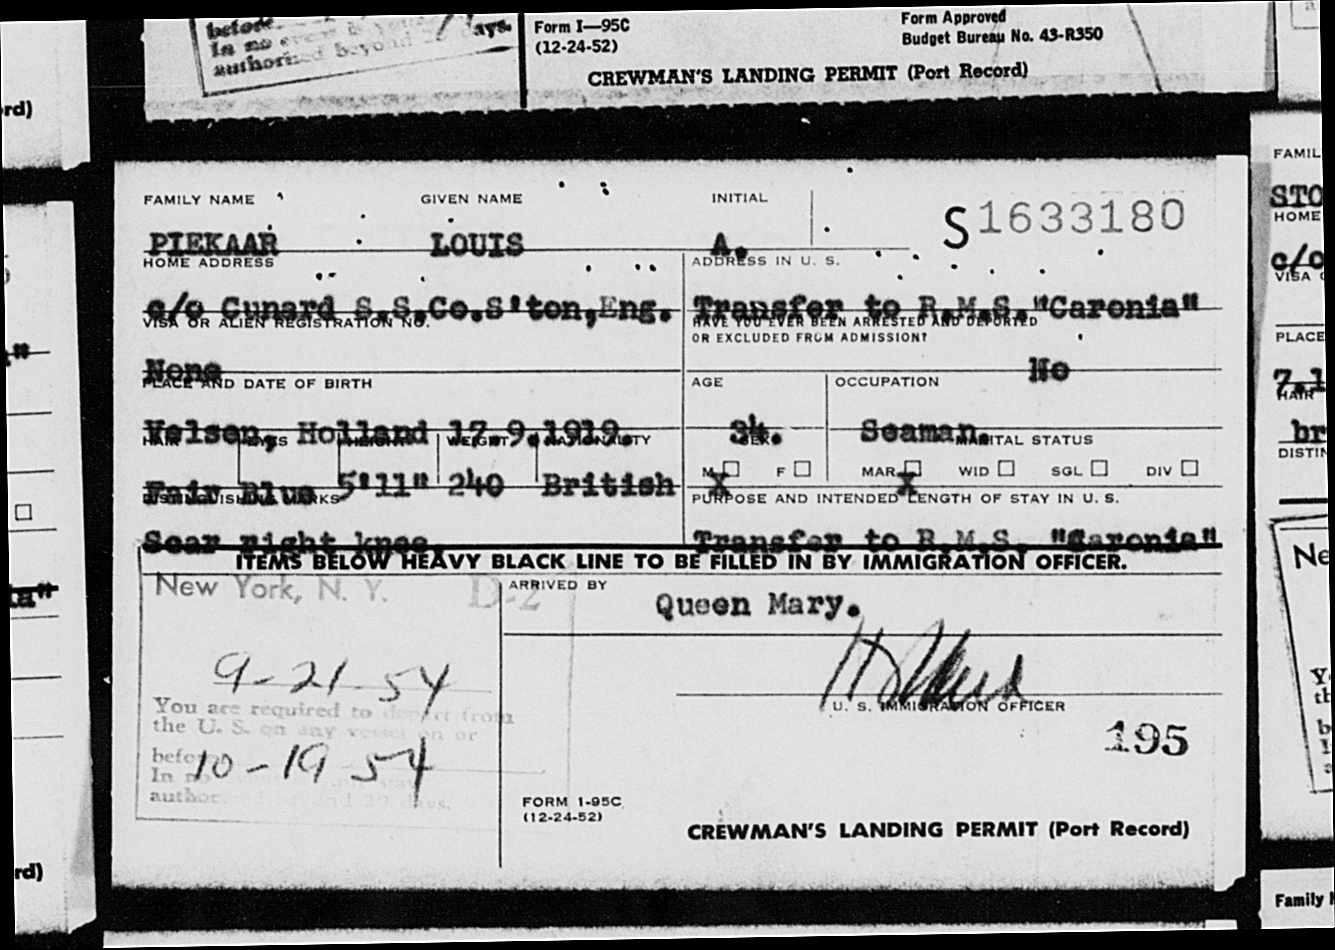 before
In no event
authorized beyond 29 days.
Form I—95C
(12-24-52)
Form Approved
Budget Bureau No. 43-R350
CREWMAN'S LANDING PERMIT (Port Record)
rd)
FAMILY NAME GIVEN NAME INITIAL
S1633180
PIEKAAR LOUIS A.
HOME ADDRESS ADDRESS IN U. S.
c/o Cunard S.S.Co.S'ton,Eng. Transfer to R.M.S."Caronia"
VISA OR ALIEN REGISTRATION NO. HAVE YOU EVER BEEN ARRESTED AND DEPORTED
OR EXCLUDED FROM ADMISSION?
None No
PLACE AND DATE OF BIRTH AGE OCCUPATION
Velsen, Holland 17.9.1919. 34. Seaman.
HAIR EYES HEIGHT WEIGHT NATIONALITY SEX MARITAL STATUS
M F MAR WID SGL DIV
X X
Fair Blue 5'11" 240 British
DISTINGUISHING MARKS PURPOSE AND INTENDED LENGTH OF STAY IN U. S.
Scar right knee. Transfer to R.M.S. "Caronia"
ITEMS BELOW HEAVY BLACK LINE TO BE FILLED IN BY IMMIGRATION OFFICER.
New York, N. Y. D-2
ARRIVED BY
Queen Mary.
9-21-54
You are required to depart from
the U. S. on any vessel on or
before 10-19 54
In no
authorized beyond 29 days.
U. S. IMMIGRATION OFFICER
195
FORM I-95C
(12-24-52)
CREWMAN'S LANDING PERMIT (Port Record)
rd)
FAMIL
STO
HOME
c/o
VISA
PLACE
7.1
HAIR
br
DISTIN
Ne
Family